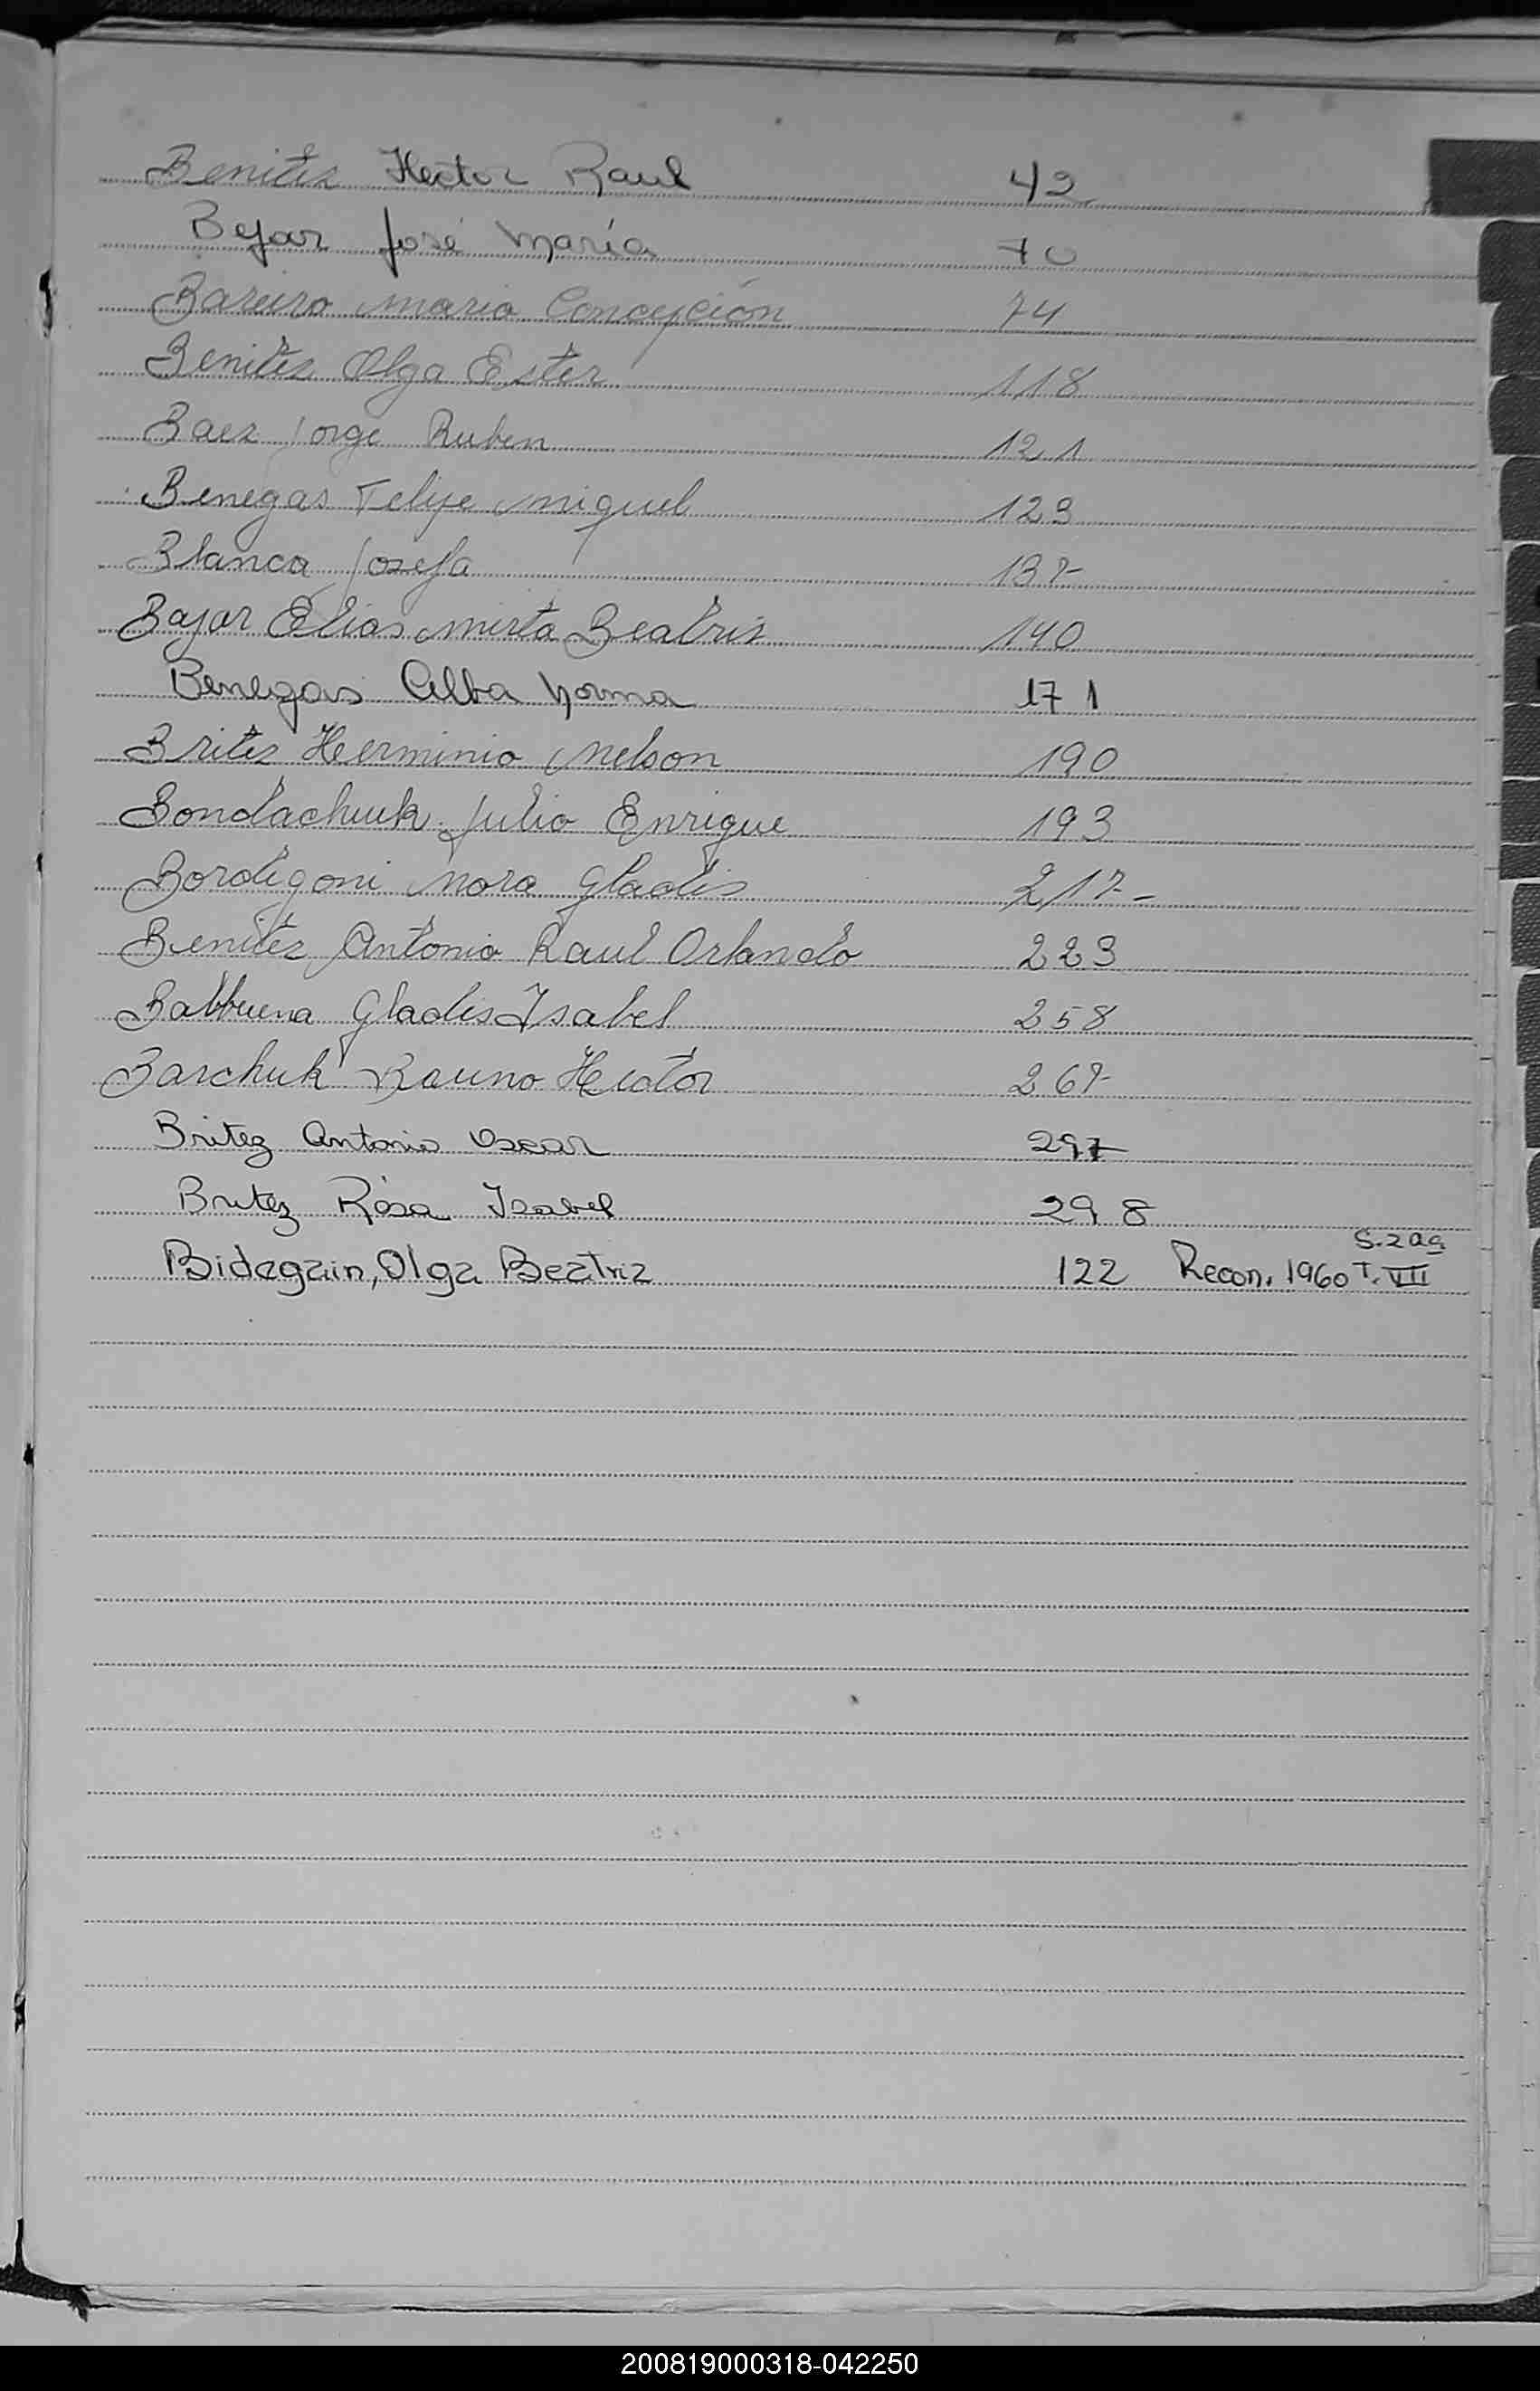 Benites Hector Raul 42
Bejar José María 70
Bareiro Maria Concepción 74
Benites Olga Ester 118
Baez Jorge Ruben 121
Benegas Felipe Miguel 123
Blanca Josefa 137
Bajar Elias Mirta Beatriz 140
Benegas Alba Norma 171
Brites Herminio Nelson 190
Bondachuk Julio Enrique 193
Bordigoni Nora Gladis 217-
Benites Antonio Raul Orlando 223
Balbuena Gladis Isabel 258
Barchuk Bauno Hector 267
Britez Antonio Oscar 297
Britez Rosa Isabel 298
S. 2a a
Bidegain, Olga Beatriz 122 Recon. 1960 T. VII
200819000318-042250